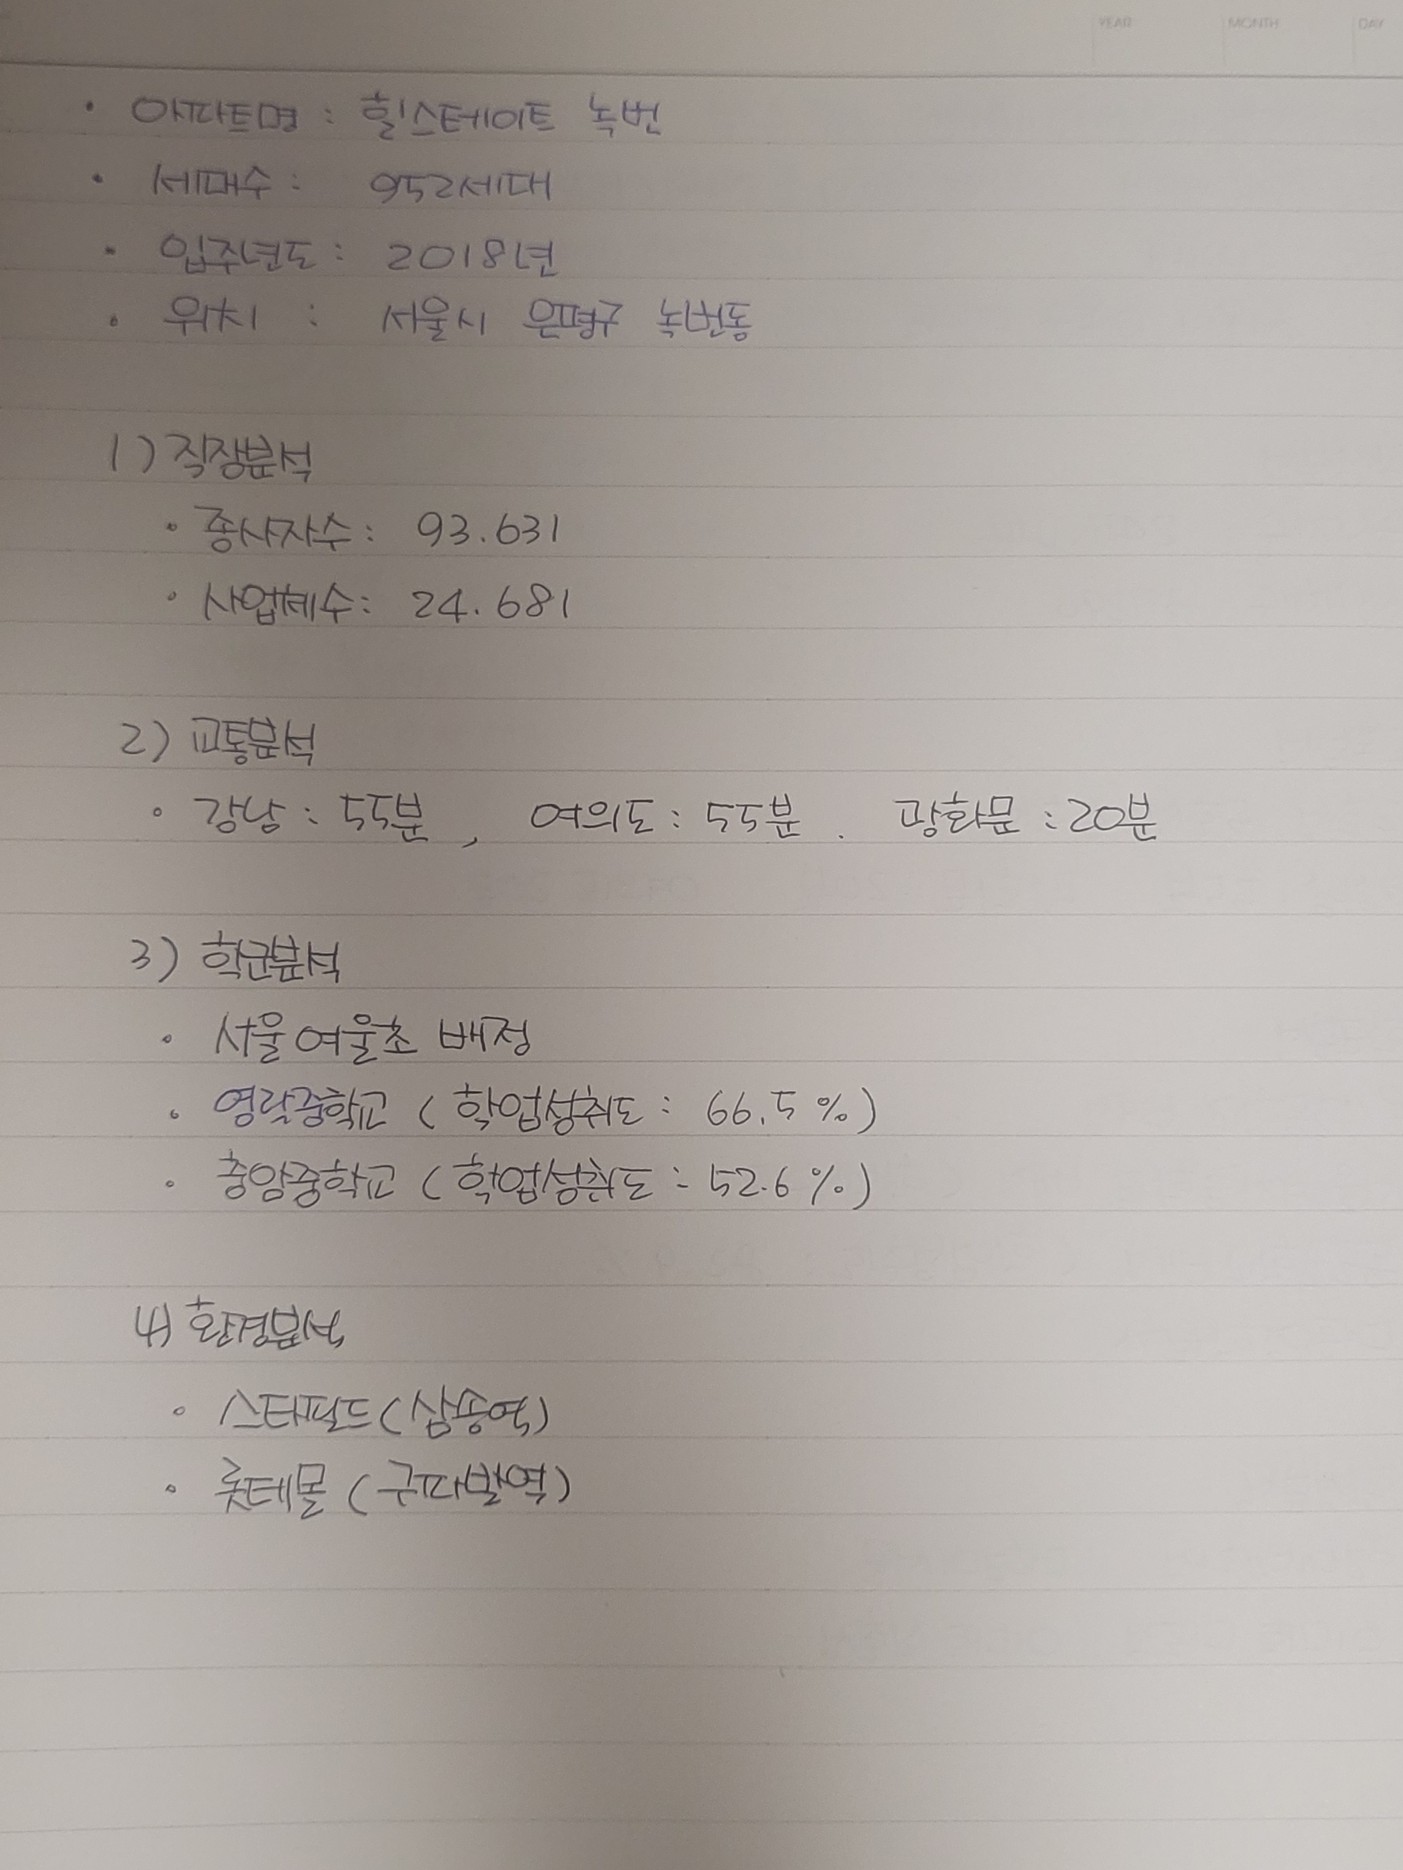 YEAR MONTH DAY
· 아파트명 : 힐스테이트 녹번
· 세대수 : 952세대
· 입주년도 : 2018년
· 위치 : 서울시 은평구 녹번동
1) 직장분석
· 종사자수 : 93.631
· 사업체수 : 24.681
2) 교통분석
· 강남 : 55분 , 여의도 : 55분 . 광화문 : 20분
3) 학군분석
· 서울여울초 배정
· 영락중학교 ( 학업성취도 : 66.5 % )
· 충암중학교 ( 학업성취도 : 52.6 % )
4) 환경분석
· 스타필드 ( 삼송역 )
· 롯데몰 ( 구파발역 )